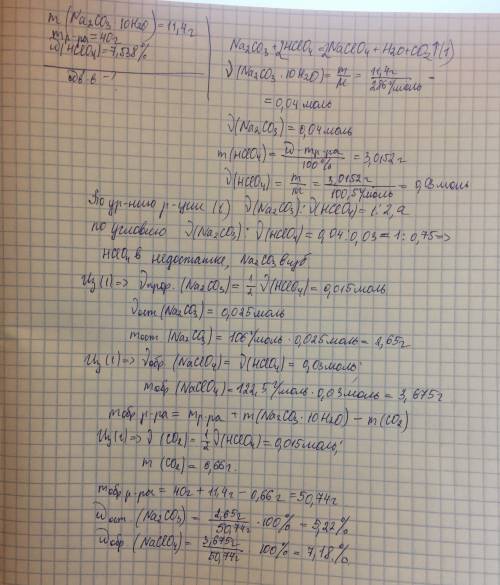 m (Na2CO3 · 10H2O) = 11,4г
mр-ра = 40г
ω(HClO4) = 7,538%
ωв-в - ?
Na2CO3 + 2HClO4 = 2NaClO4 + H2O + CO2↑ (1)
ν(Na2CO3 · 10H2O) = m/M = 11,4г/286г/моль =
= 0,04 моль
ν(Na2CO3) = 0,04 моль
m(HClO4) = ω · mр-ра/100% = 3,0152 г
ν(HClO4) = m/M = 3,0152г/100,5г/моль = 0,03 моль
По ур-нию р-ции (1) ν(Na2CO3) : ν(HClO4) = 1 : 2, а
по условию ν(Na2CO3) : ν(HClO4) = 0,04 : 0,03 = 1 : 0,75 =>
HClO4 в недостатке, Na2CO3 в изб
Из (1) => νпрор. (Na2CO3) = 1/2 ν(HClO4) = 0,015моль
νост (Na2CO3) = 0,025моль
mост (Na2CO3) = 106г/моль · 0,025моль = 2,65г
Из (1) => νобр. (NaClO4) = ν(HClO4) = 0,03моль;
mобр (NaClO4) = 122,5г/моль · 0,03моль = 3,675г
mобр.р-ра = mр-ра + m(Na2CO3 · 10H2O) - m(CO2)
Из (1) => ν (CO2) = 1/2 ν(HClO4) = 0,015моль;
m (CO2) = 0,66г.
mобр.р-ра = 40г + 11,4г - 0,66г = 50,74г
ωост (Na2CO3) = 2,65г/50,74г · 100% = 5,22%
ωобр (NaClO4) = 3,675г/50,74г · 100% = 7,18%